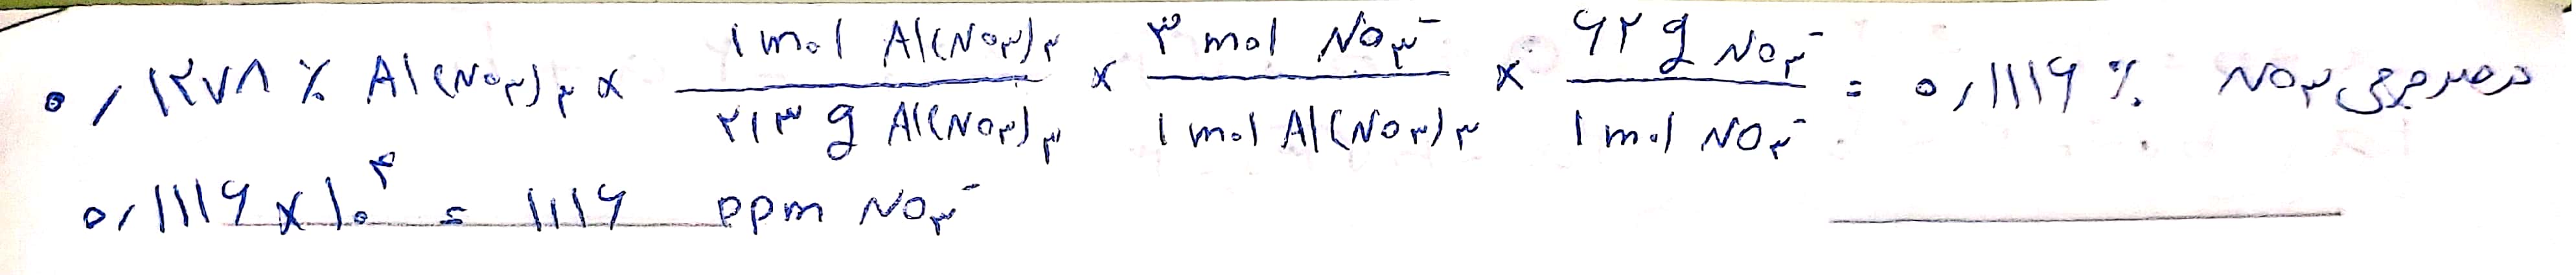 ۰/۱۲۷۸ % Al(NO۳)۳ × ۱ mol Al(NO۳)۳ / ۲۱۳ g Al(NO۳)۳ × ۳ mol NO۳⁻ / ۱ mol Al(NO۳)۳ × ۶۲ g NO۳⁻ / ۱ mol NO۳⁻ = ۰/۱۱۱۶ % NO۳ درصد جرمی
۰/۱۱۱۶ × ۱۰^۴ = ۱۱۱۶ ppm NO۳⁻